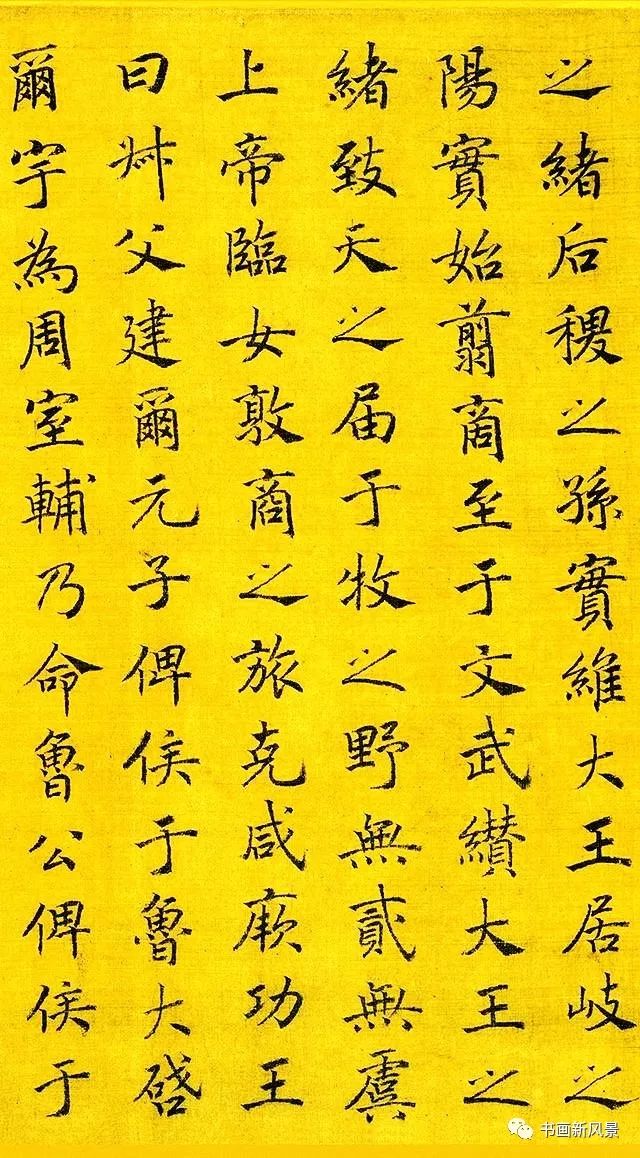 之緒后稷之孫實維大王居岐之
陽實始翦商至于文武纘大王之
緒致天之届于牧之野無貳無虞
上帝臨女敦商之旅克咸厥功王
曰叔父建爾元子俾侯于魯大啓
爾宇為周室輔乃命魯公俾侯于
书画新风景